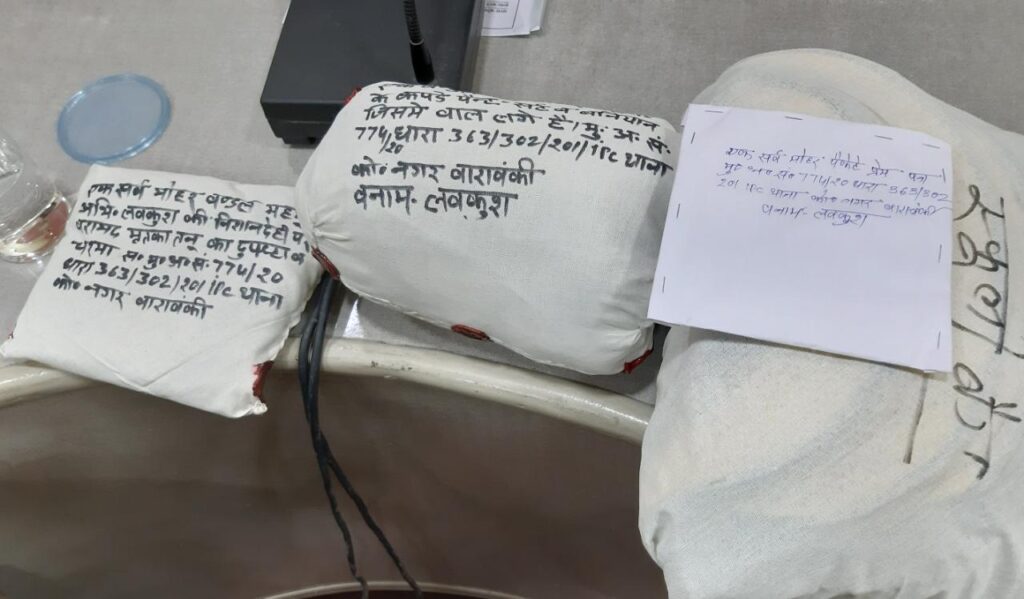 एक सर्व मोहर बण्डल
अभि० लवकुश की निशानदेही
बरामद मृतका तनू का दुपट्टा
चश्मा स० मु० अ० सं० 774/20
धारा 363/302/201/IPC थाना
को० नगर बाराबंकी
के कपडे पेन्ट
जिसमे बाल लगे है। मु. अ. सं.
774/20 धारा 363/302/201/IPC थाना
को० नगर बाराबंकी
बनाम- लवकुश
एक सर्व मोहर पैकेट प्रेम पत्र
मु० अ० सं० 774/20 धारा 363/302
201 IPC थाना को० नगर बाराबंकी
बनाम- लवकुश